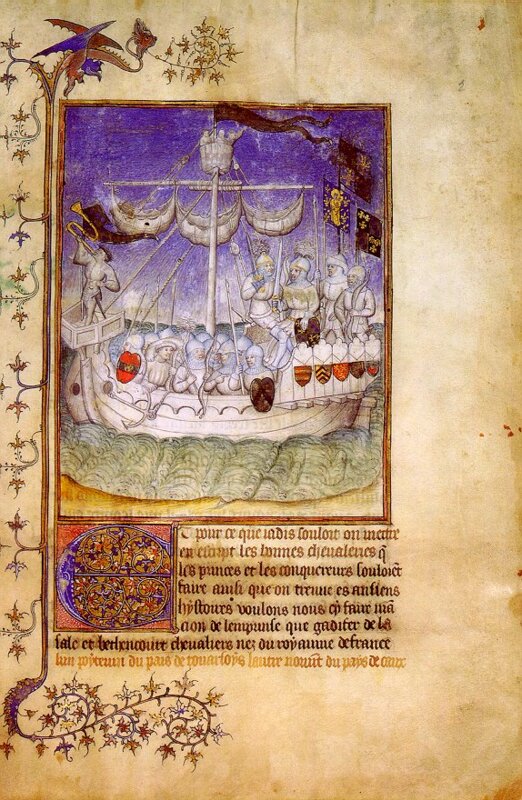 Et pour ce que iadis souloit on mectre
en escript les bonnes cheualeries q̄
les princes et les conquereurs souloiēt
faire ainsi que on treuue es ansiens
hystoires voulons nous cy faire mā
cion de lempunse que gadifer de la
sale et bethencourt cheualiers nez du royaume de france
lun poyteuin du pais de touarsoys lautre normāt du pays de caux